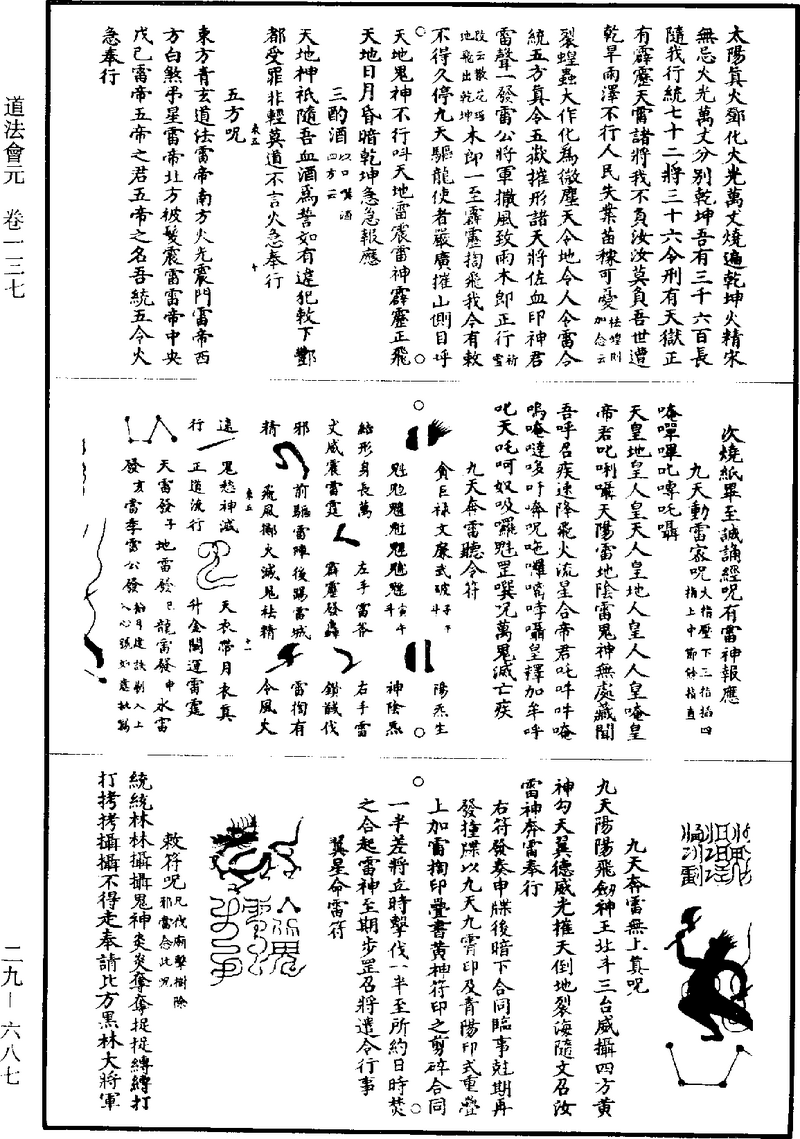 道法會元　卷一三七
二九—六八七
太陽真火鄧化火光萬丈燒遍乾坤火精宋
無忌火光萬丈分別乾坤吾有三千六百長
隨我行統七十二將三十六令刑有天獄正
有霹靂天雷諸將我不負汝汝莫負吾世遭
乾旱雨澤不行人民失業苗稼可憂祛蝗則加念云
裂蝗蟲大作化為微塵天令地令人令雷令
統五方真令五嶽摧形諸天將佐血印神君
雷聲一發雷公將軍撒風致雨木郎正行祈雪
改云散花瑶地飛出乾坤木郎一至霹靂掏飛我今有敕
不得久停九天驅龍使者嚴廣摧山側目呼
天地鬼神不行叫天地雷震雷神霹靂正飛
天地日月昏暗乾坤急急報應
三酌酒以口噀酒四方云
天地神祇隨吾血酒為誓如有違犯敕下酆
都受罪非輕莫道不言火急奉行
五方呪
東方青玄道法雷帝南方火光震門雷帝西
方白煞乎星雷帝北方被髮震雷雷帝中央
戊己雷帝五帝之君五帝之名吾統五令火
急奉行
次燒紙畢至誠誦經呪有雷神報應
九天動雷家呪大指壓下三指掐四指上中節餘指直
唵嘽嗶叱嘨吒囁
天皇地皇人皇天人皇地人皇人人皇唵皇
帝君叱唎囁天陽雷地陰雷鬼神無處藏聞
吾呼召疾速降飛火流星合帝君吒吽吽唵
嗚唵噠哆吽奔呪唵囉嘀哱囁皇擇加牟呼
叱天吒呵奴吸囉魁罡噀況萬鬼滅亡疾
九天奔雷聽令符
貪巨祿文廉武破子午斗
陽炁生
神陰炁
結形身長萬
左手雷斧
右手雷
丈威震雷霆
霹靂發轟
鎖馘伐
邪
前驅雷陣後踢雷城
雷掏有
精
飛風擲火滅鬼祛精
令風火
遠
鬼愁神滅
天衣帶月衣真
行
正道流行
升金闕運雷霆
天雷發子地雷發巳龍雷發申水雷
發亥雷季雷公發
九天奔雷無上真呪
九天陽陽飛劍神王北斗三台威攝四方黄
神勾天翼德威光摧天倒地裂海隨文召汝
雷神奔雷奉行
右符發奏申牒後暗下合同臨事尅期再
發撞牒以九天九霄印及青陽印式重疊
上加雷掏印疊書黄神符印之剪碎合同
一半差將立時擊伐一半至所約日時焚
之合起雷神至期步罡召將遣令行事
翼星命雷符
敕符呪凡伐廟擊樹除邪當念此呪
統統林林攝攝鬼神炎炎奪奪捉捉縛縛打
打拷拷攝攝不得走奉請比方黑林大將軍